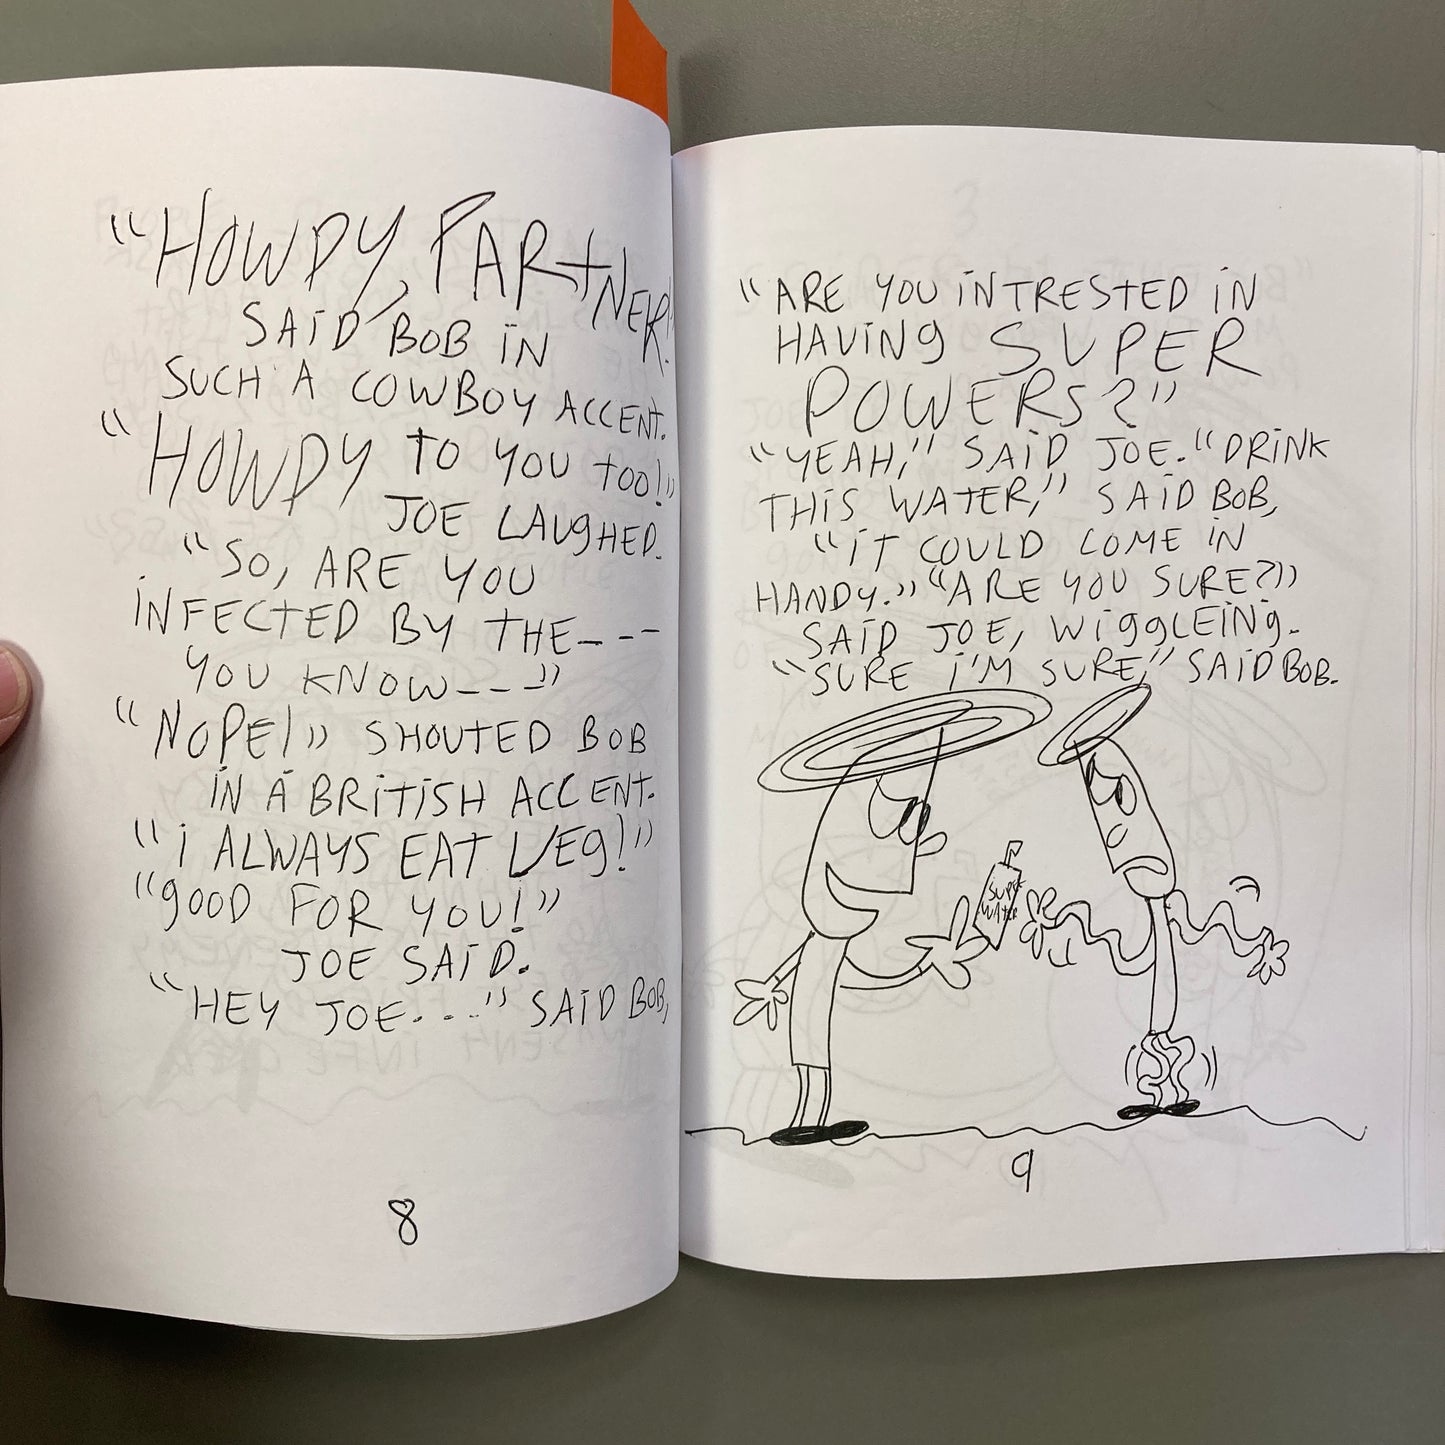 "HOWDY, FARTNER!"
SAID BOB IN
SUCH A COWBOY ACCENT.
"HOWDY TO YOU TOO!"
JOE LAUGHED.
"SO, ARE YOU
INFECTED BY THE---
YOU KNOW---"
"NOPE!" SHOUTED BOB
IN A BRITISH ACCENT.
"I ALWAYS EAT VEG!"
"GOOD FOR YOU!"
JOE SAID.
"HEY JOE...." SAID BOB,
8
"ARE YOU INTRESTED IN
HAVING SUPER
POWERS?"
"YEAH," SAID JOE. "DRINK
THIS WATER," SAID BOB,
"IT COULD COME IN
HANDY." "ARE YOU SURE?"
SAID JOE, WIGGLEING.
"SURE I'M SURE," SAID BOB.
SUPER
WATER
9